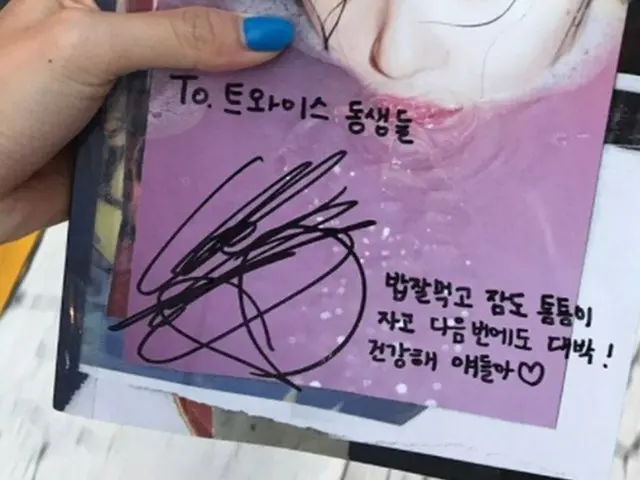 To. 트와이스 동생들
밥잘먹고 잠도 틈틈이
자고 다음번에도 대박!
건강해 얘들아♡